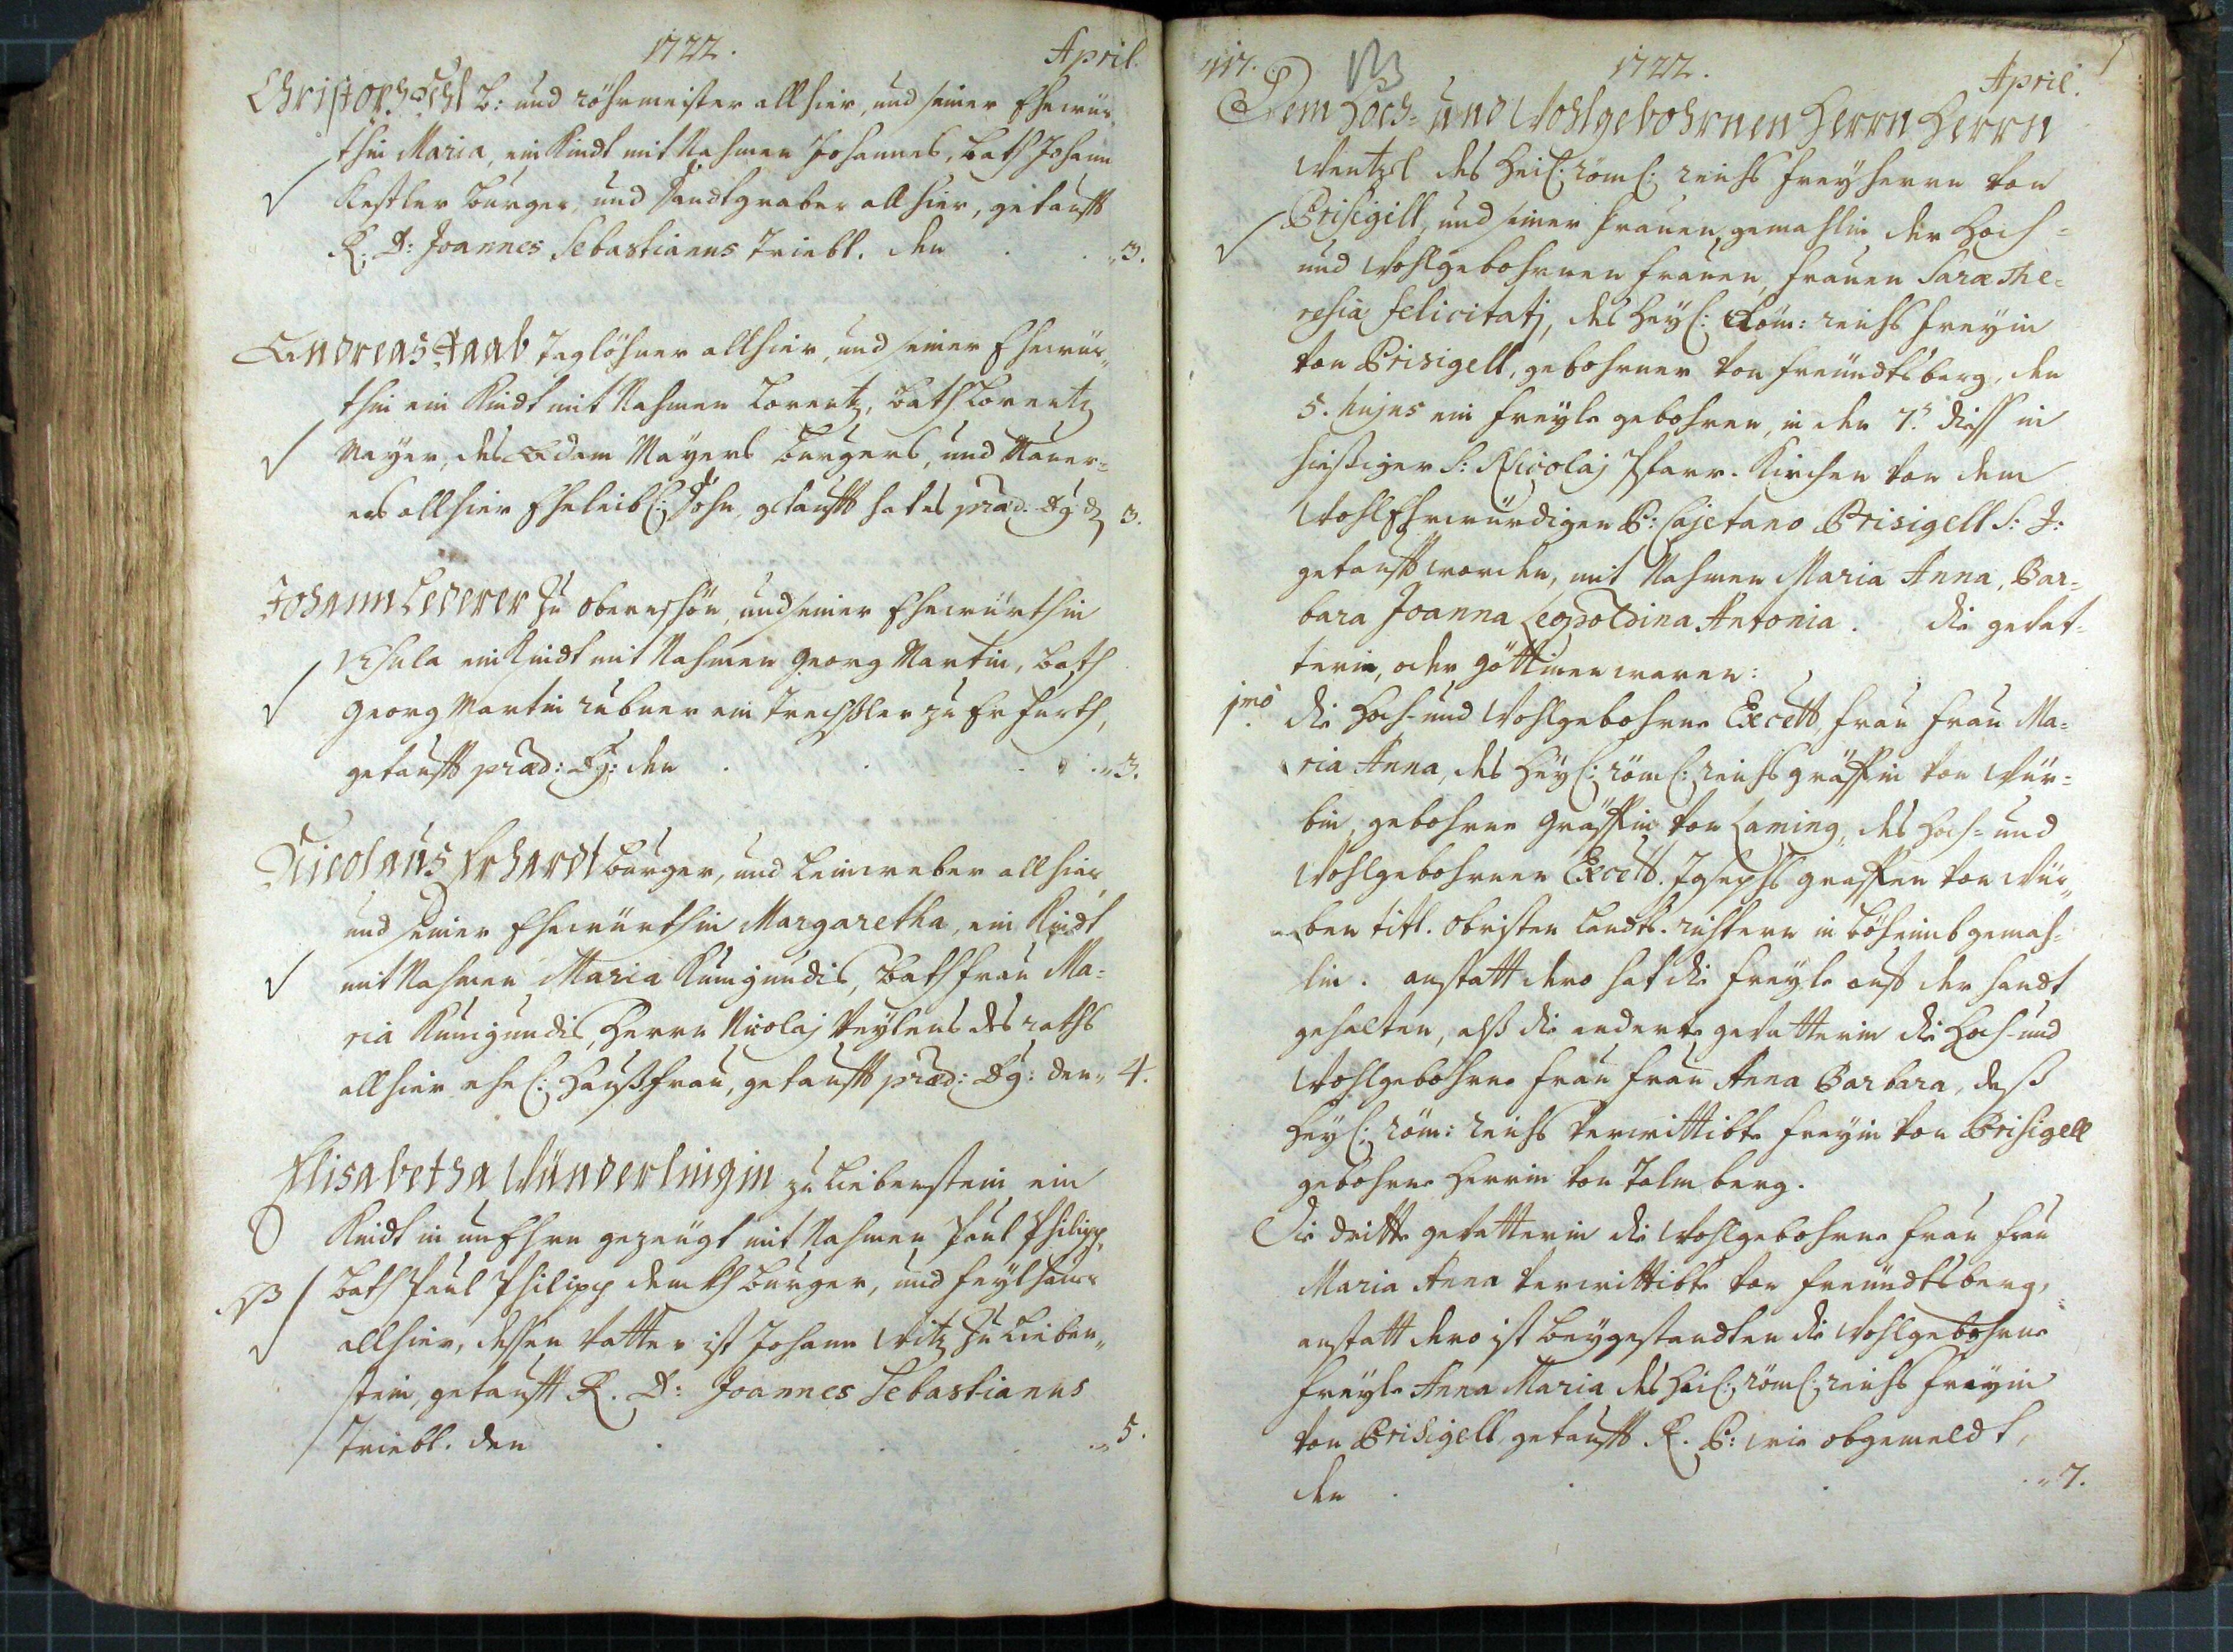 1722.
April.
Christoph Öhl B: und röhrmeister allhier, und seiner Ehewür-
thin Maria, ein Kindt mit Nahmen Johannes, bath Johann
Kestler Burger, und Sandtgraber allhier, getaufft
R. D: Joannes Sebastianus Triebl. den . . „3.
Andreas Staab Taglöhner allhier, und seiner Ehewür„
thin ein Kindt mit Nahmen Lorentz, bath Lorentz
Mayer, des Adam Mayers Burgers, und Maur-
ers allhier Eheleibl: Sohn, getaufft hat es præd. Dg d 3.
Johann Lederer zu oberschön, und seiner Ehewürthin
Ursula ein Kindt mit Nahmen Georg Martin, bath
Georg Martin Zubner ein Trechßler zu Erfurth,
getaufft præd: Dg: den . . . „3.
Nicolaus Erhardt Burger, und Leinweber allhier
und seiner Ehewürthin Margaretha, ein Kindt
mit Nahmen Maria Kunigundis, bath frau Ma-
ria Kunigundis, Herrn Nicolaj des raths
allhier ehel: Haußfrau, getaufft præd: Dg: den „4.
Elisabetha Wünderlingin zu Liebenstein ein
Kindt in unEhren gezeugt mit Nahmen Paul Philipp,
NB bath Paul Philipp Burger, und
allhier, dessen Vatter ist Johann Witz zu Lieben„
stein, getaufft R. D: Joannes Sebastianus
Triebl. den . . . „5.
417.
113
1722.
April.
Dem Hoch- und Wohlgebohrnen Herrn Herrn
Wentzl des Heil: röml: reichs freyherrn von
Brisigell, und seiner frauen gemahlin der Hoch-
und Wohlgebohrnen frauen, frauen Saræ The-
resia felicitatj, des Heyl: Röm: reichs freyin
von Brisigell, gebohrner von freundtsberg, den
5. hujus ein freyle gebohren, in den 7. diß in
hießiger S: Nicolaj Pfarr-Kirchen von dem
WohlEhrwürdigen P: Cajetano Brisigell S: J:
getaufft worden, mit Nahmen Maria Anna, Bar-
bara Joanna Leopoldina Antonia. die gevat-
terin, oder göttinen waren:
jmo die Hoch- und Wohlgebohrne Excell, frau frau Ma-
ria Anna, des Heyl: röml: reichs gräffin von Wür-
bin, gebohrne gräffin von Laming, des Hoch- und
Wohlgebohrnen Excell. Josephs graffen von Wür„
ben titl. obristen Landt-richtern in Böheimb gemah-
lin. anstatt dero hat die freyle auß der handt
gehalten, alß die anderte gevatterin die Hoch- und
Wohlgebohrne frau frau Anna Barbara, deß
Heyl: röm: reichs verwittibte freyin von Brisigell
gebohrne Herrin von Talmberg.
Die dritte gevatterin die Wohlgebohrne frau frau
Maria Anna verwittibte von freundtsberg,
anstatt dero ist beygestandten die Wohlgebohrne
freyle Anna Maria des Heil: röml: reichs freyin
von Brisigell, getaufft R. P: wie obgemeldt,
den . . . „7.